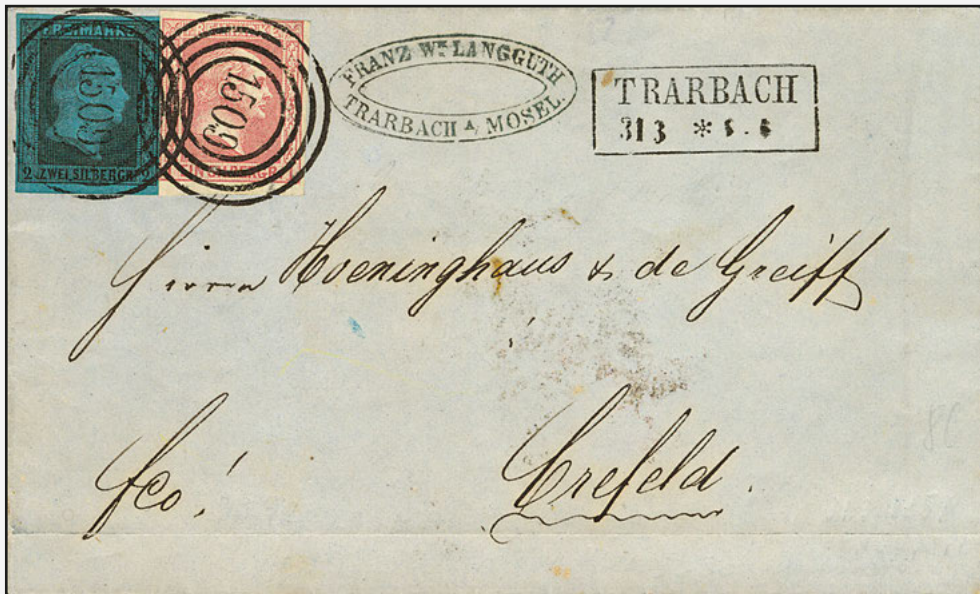 FREIMARKE
1509
2 ZWEI SILBERGR. 2
FREIMARKE
1509
1 EIN SILBERGR. 1
FRANZ Wm LANGGUTH
TRARBACH A, MOSEL.
TRARBACH
31 3 *
Herrn Hoeninghaus & de Greiff
fco!
Crefeld.